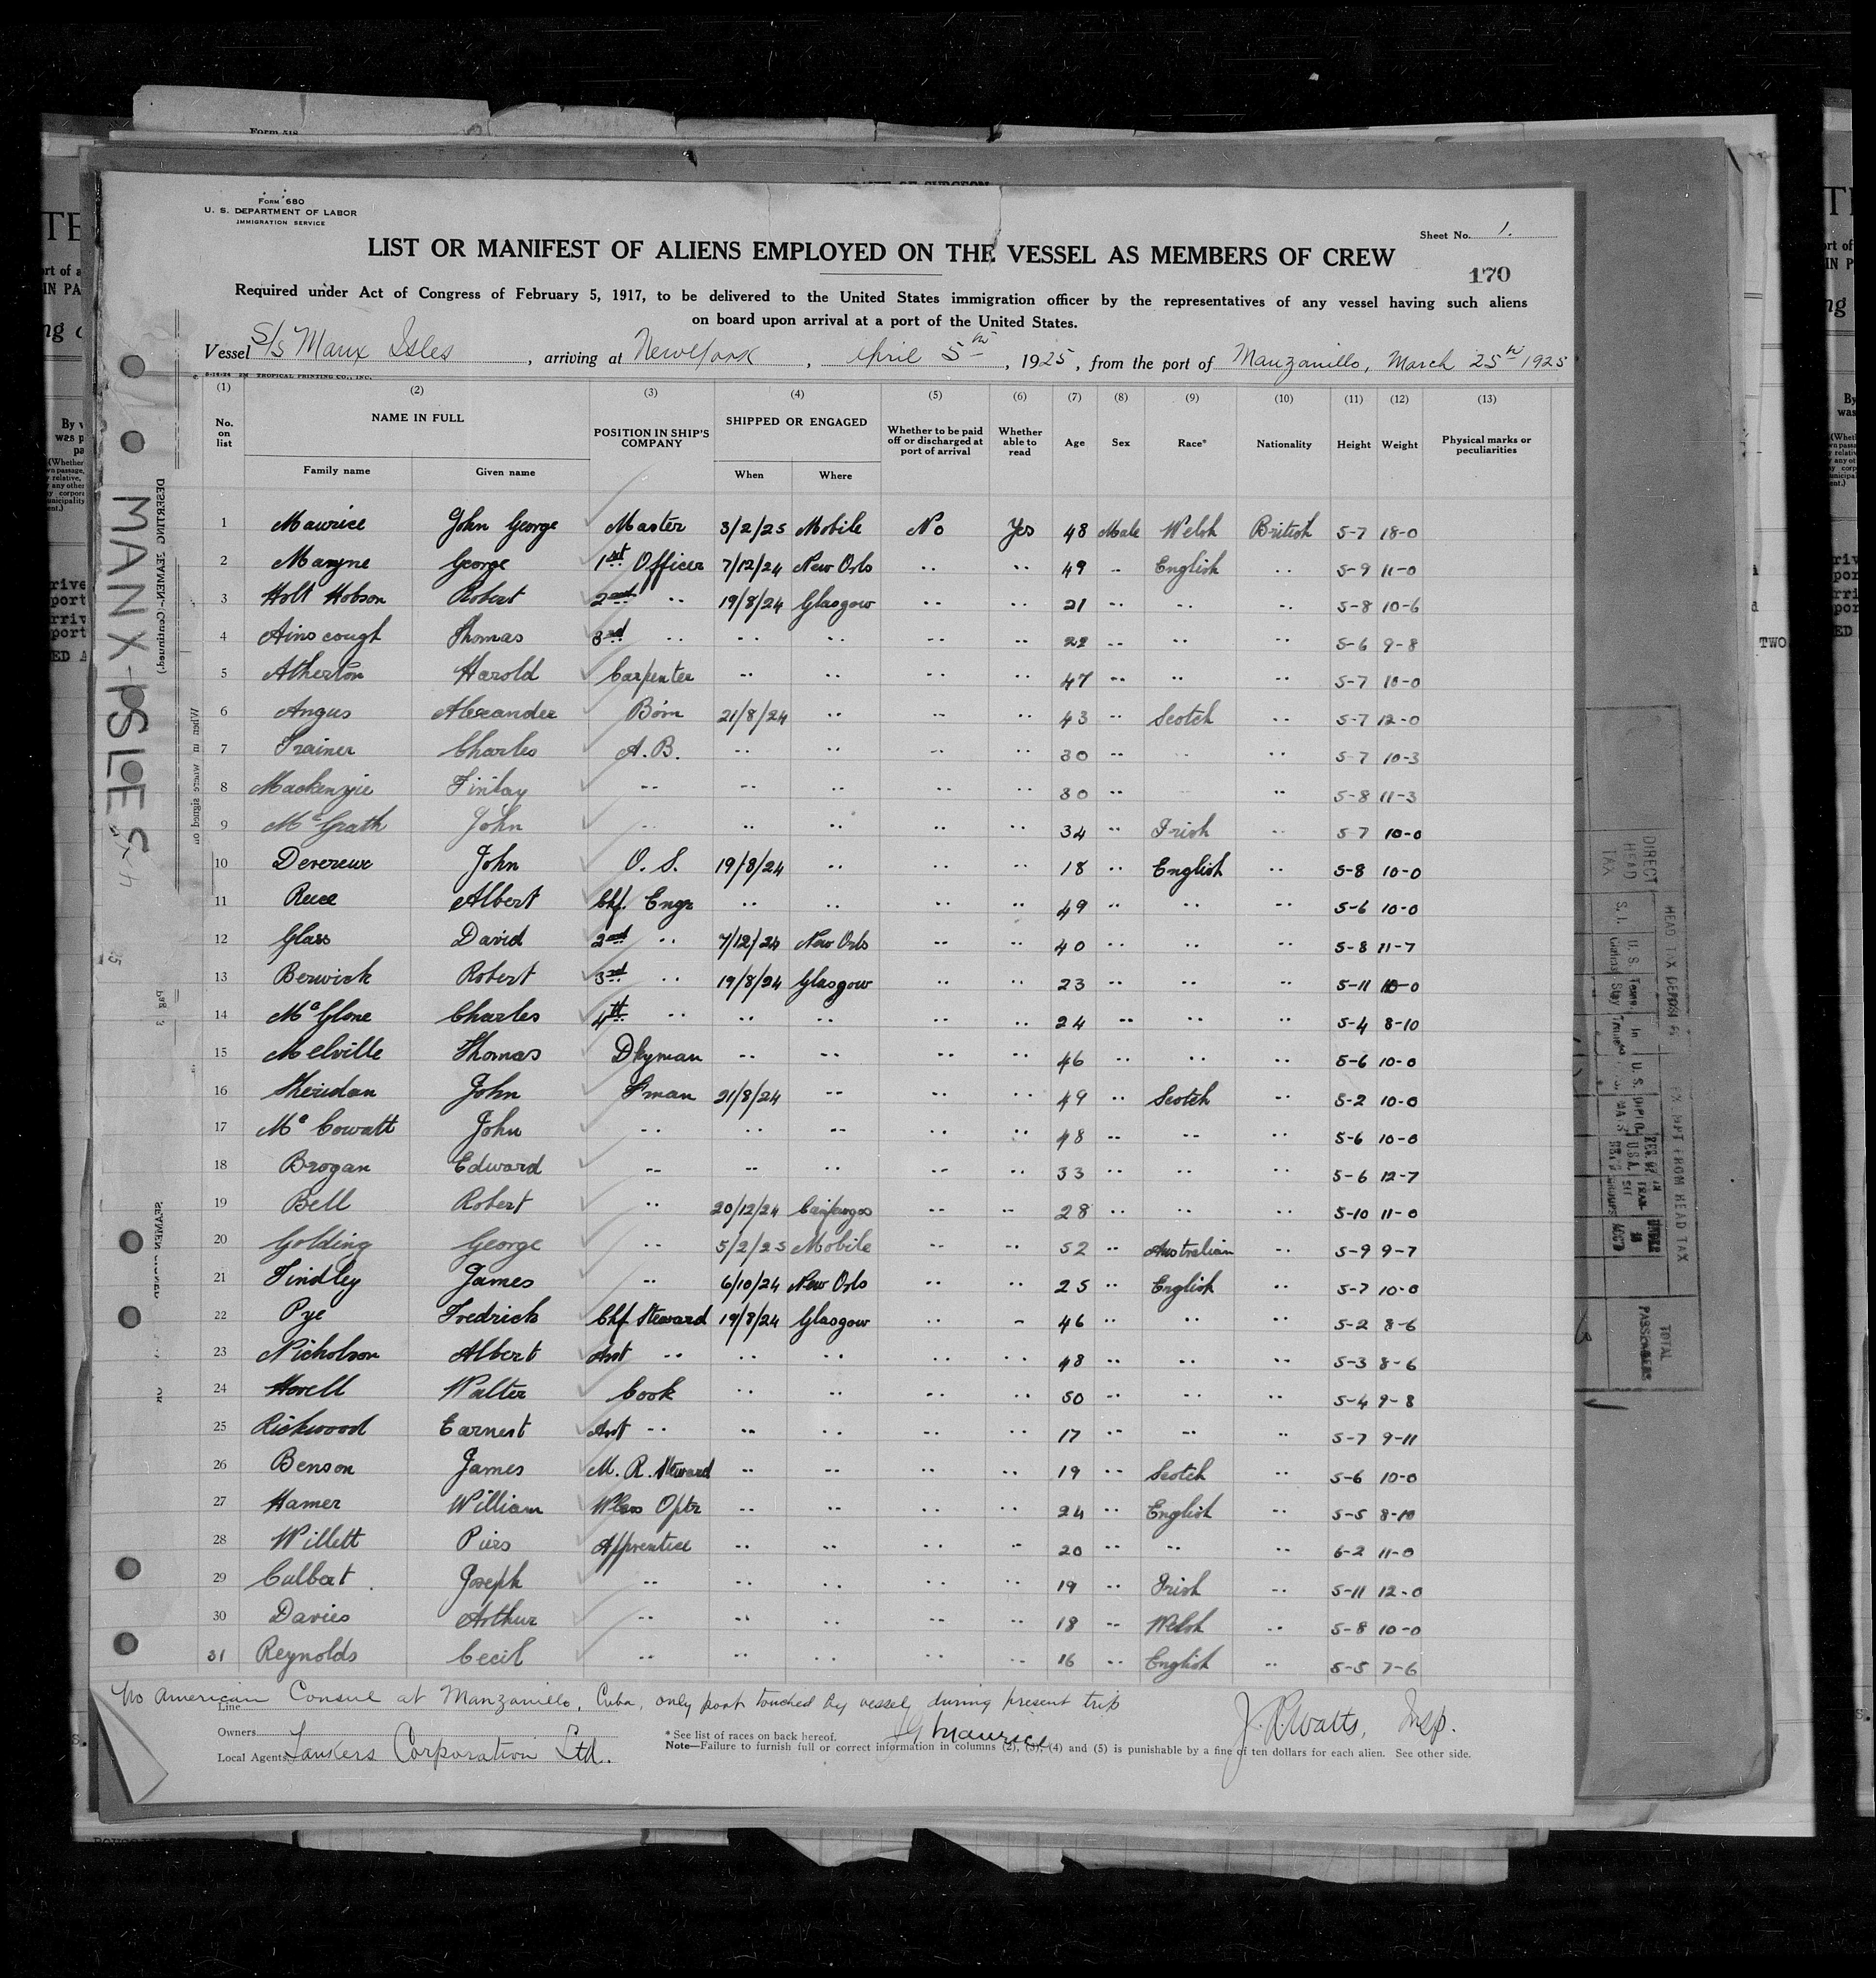 Form 680
U. S. DEPARTMENT OF LABOR
IMMIGRATION SERVICE
Sheet No. 1.
LIST OR MANIFEST OF ALIENS EMPLOYED ON THE VESSEL AS MEMBERS OF CREW
170
Required under Act of Congress of February 5, 1917, to be delivered to the United States immigration officer by the representatives of any vessel having such aliens
on board upon arrival at a port of the United States.
Vessel S/s Manx Isles, arriving at New York, April 5th, 1925, from the port of Manzanillo, March 25th 1925
(1) (2) (3) (4) (5) (6) (7) (8) (9) (10) (11) (12) (13)
No. on list NAME IN FULL POSITION IN SHIP'S COMPANY SHIPPED OR ENGAGED Whether to be paid off or discharged at port of arrival Whether able to read Age Sex Race* Nationality Height Weight Physical marks or peculiarities
Family name Given name When Where
1 Maurice John George Master 3/2/25 Mobile No Yes 48 Male Welsh British 5-7 18-0
2 Mayne George 1st Officer 7/12/24 New Orls .. .. 49 .. English .. 5-9 11-0
3 Holt Hobson Robert 2nd .. 19/8/24 Glasgow .. .. 21 .. .. .. 5-8 10-6
4 Ainscough Thomas 3rd .. .. .. .. .. 22 .. .. .. 5-6 9-8
5 Atherton Harold Carpenter .. .. .. .. 47 .. .. .. 5-7 10-0
6 Angus Alexander Bo'n 21/8/24 .. .. .. 43 .. Scotch .. 5-7 12-0
7 Trainer Charles A.B. .. .. .. .. 30 .. .. .. 5-7 10-3
8 Mackenzie Finlay .. .. .. .. .. 30 .. .. 5-8 11-3
9 McGrath John .. .. .. .. .. 34 .. Irish .. 5-7 10-0
10 Devereux John O. S. 19/8/24 .. .. .. 18 .. English .. 5-8 10-0
11 Reece Albert Chf. Engr .. .. .. .. 49 .. .. .. 5-6 10-0
12 Glass David 2nd .. 7/12/24 New Orls .. .. 40 .. .. .. 5-8 11-7
13 Berwick Robert 3rd .. 19/8/24 Glasgow .. .. 23 .. .. .. 5-11 10-0
14 McGlone Charles 4th .. .. .. .. .. 24 .. .. .. 5-4 8-10
15 Melville Thomas Dkyman .. .. .. .. 46 .. .. .. 5-6 10-0
16 Sheridan John F'man 21/8/24 .. .. .. 49 .. Scotch .. 5-2 10-0
17 Mc Cowatt John .. .. .. .. .. 48 .. .. .. 5-6 10-0
18 Brogan Edward .. .. .. .. .. 33 .. .. .. 5-6 12-7
19 Bell Robert .. 20/12/24 .. .. 28 .. .. .. 5-10 11-0
20 Golding George .. 5/2/25 Mobile .. .. 52 .. Australian .. 5-9 9-7
21 Findley James .. 6/10/24 New Orls .. .. 25 .. English .. 5-7 10-0
22 Pye Fredrick Chf Steward 19/8/24 Glasgow .. .. 46 .. .. .. 5-2 8-6
23 Nicholson Albert Asst .. .. .. .. .. 48 .. .. .. 5-3 8-6
24 Hovell Walter Cook .. .. .. .. 50 .. .. .. 5-4 9-8
25 Rickwood Earnest Asst .. .. .. .. .. 17 .. .. .. 5-7 9-11
26 Benson James M. R. Steward .. .. .. .. 19 .. Scotch .. 5-6 10-0
27 Hamer William W'less Optr .. .. .. .. 24 .. English .. 5-5 8-10
28 Willett Piers Apprentice .. .. .. .. 20 .. .. .. 6-2 11-0
29 Culbert Joseph .. .. .. .. .. 19 .. Irish .. 5-11 12-0
30 Davies Arthur .. .. .. .. .. 18 .. Welsh .. 5-8 10-0
31 Reynolds Cecil .. .. .. .. .. 16 .. English .. 5-5 7-6
No American Consul at Manzanillo, Cuba, only port touched by vessel during present trip
Line
Owners
Local Agents Tankers Corporation Ltd.
* See list of races on back hereof.
JG Maurice
J. R. Watts, Insp.
Note—Failure to furnish full or correct information in columns (2), (3), (4) and (5) is punishable by a fine of ten dollars for each alien. See other side.
MANX-ISLES
DESERTING SEAMEN—(Continued.)
TOTAL PASSENGERS